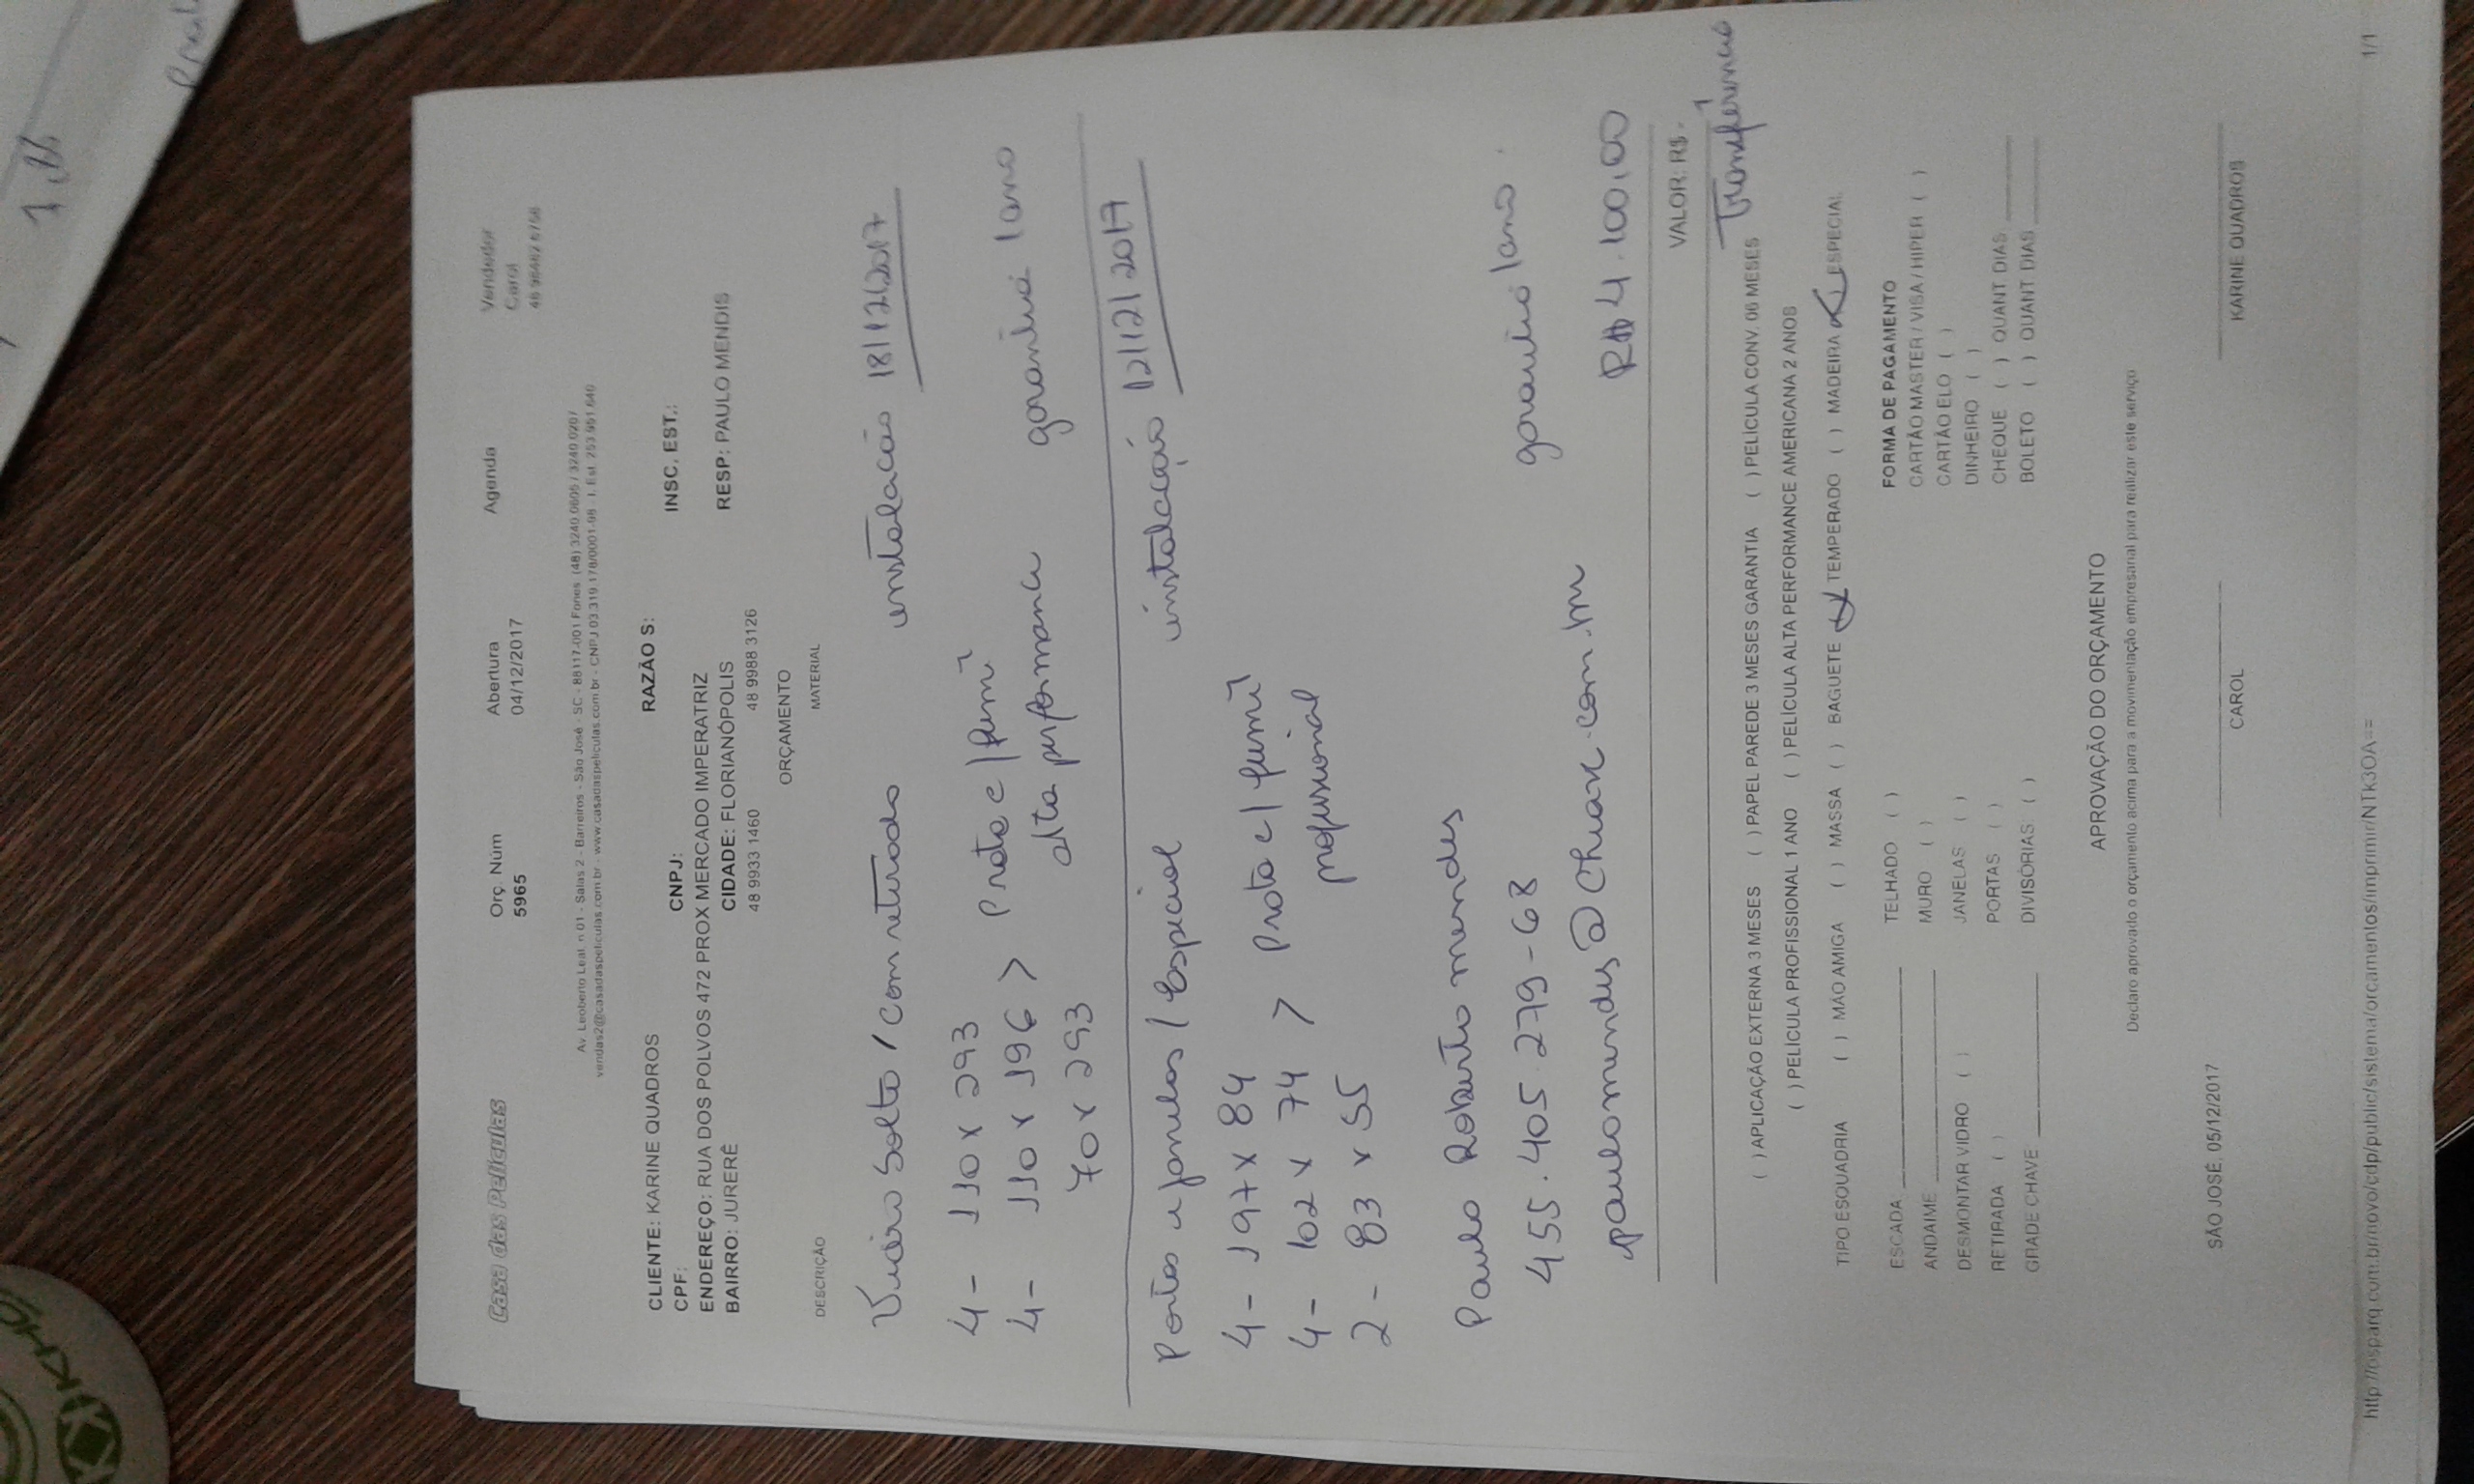 Casa das Películas
Orç. Núm
5965
Abertura
04/12/2017
Agenda
Vendedor
Carol
Av. Leoberto Leal, n 01 - Salas 2 - Barreiros - São José - SC - 88117-001 Fones (48) 3240 0605 / 3240 0207
vendas2@casadaspeliculas.com.br - www.casadaspeliculas.com.br - CNPJ 03 319 178/0001-98 - I. Est. 253 951 640
CLIENTE: KARINE QUADROS RAZÃO S:
CPF: CNPJ: INSC. EST.:
ENDEREÇO: RUA DOS POLVOS 472 PROX MERCADO IMPERATRIZ
BAIRRO: JURERÊ CIDADE: FLORIANÓPOLIS RESP: PAULO MENDIS
48 9933 1460 48 9988 3126
ORÇAMENTO
DESCRIÇÃO MATERIAL
Vidro Solto / com retirada instalação 18/12/2017
4 - 110 x 293
4 - 110 x 196 > Prata c/ fumê garantia 1 ano
70 x 293 alta performance
Portas e janelas / Especial instalação 12/12/2017
4 - 197 x 84
4 - 102 x 74 > Prata c/ fumê
2 - 83 x 55 profissional
garantia 1 ano.
Paulo Roberto mendes
455.405.279-68
paulomendes@chiax.com.br R$ 4.100,00
VALOR: R$ -
Transferência
( ) APLICAÇÃO EXTERNA 3 MESES ( ) PAPEL PAREDE 3 MESES GARANTIA ( ) PELÍCULA CONV. 06 MESES
( ) PELÍCULA PROFISSIONAL 1 ANO ( ) PELÍCULA ALTA PERFORMANCE AMERICANA 2 ANOS
TIPO ESQUADRIA ( ) MÃO AMIGA ( ) MASSA ( ) BAGUETE (X) TEMPERADO ( ) MADEIRA (X) ESPECIAL
ESCADA TELHADO ( ) FORMA DE PAGAMENTO
ANDAIME MURO ( ) CARTÃO MASTER / VISA / HIPER ( )
DESMONTAR VIDRO ( ) JANELAS ( ) CARTÃO ELO ( )
RETIRADA ( ) PORTAS ( ) DINHEIRO ( )
GRADE CHAVE DIVISÓRIAS ( ) CHEQUE ( ) QUANT DIAS
BOLETO ( ) QUANT DIAS
APROVAÇÃO DO ORÇAMENTO
Declaro aprovado o orçamento acima para a movimentação empresarial para realizar este serviço
SÃO JOSÉ, 05/12/2017
CAROL
KARINE QUADROS
http://osparq.com.br/novo/cdp/public/sistema/orcamentos/imprimir/NTk3OA==
1/1